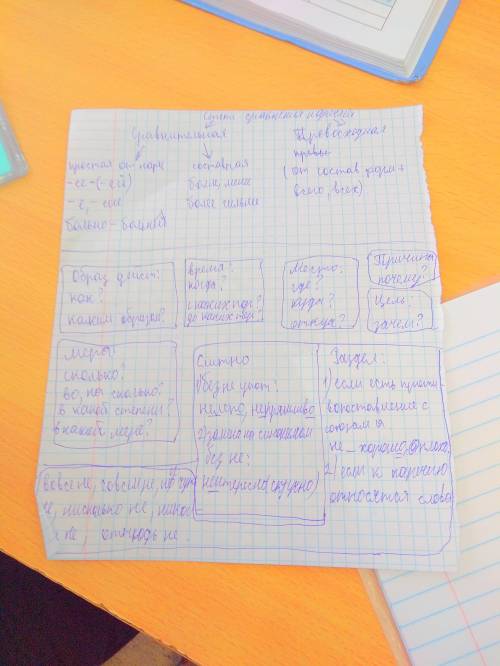 Степени сравнения наречий
Сравнительная
простая от нареч
-ее-(-ей)
-е, -ше
больно - больней
составная
более, менее
более сильнее
Превосходная
(от состав форм +
всего, всех)
Образ дейст:
как?
каким образом?
время?
когда?
с каких пор?
до каких пор?
Место:
где?
куда?
откуда?
Причины
почему?
Цель:
зачем?
Меры:
сколько?
во, на сколько?
в какой степени?
в какой мере?
Слитно
1) без не употр:
нелепо, неряшливо
2) замена на синоним
без не:
неинтересно (скучно)
Раздел:
1) если есть проти-
вопоставление с
союзом а
не хорошо, а плохо
2) если к наречию
относятся слова
вовсе не, совсем не, ...
не, нисколько не, никак-
не, отнюдь не.